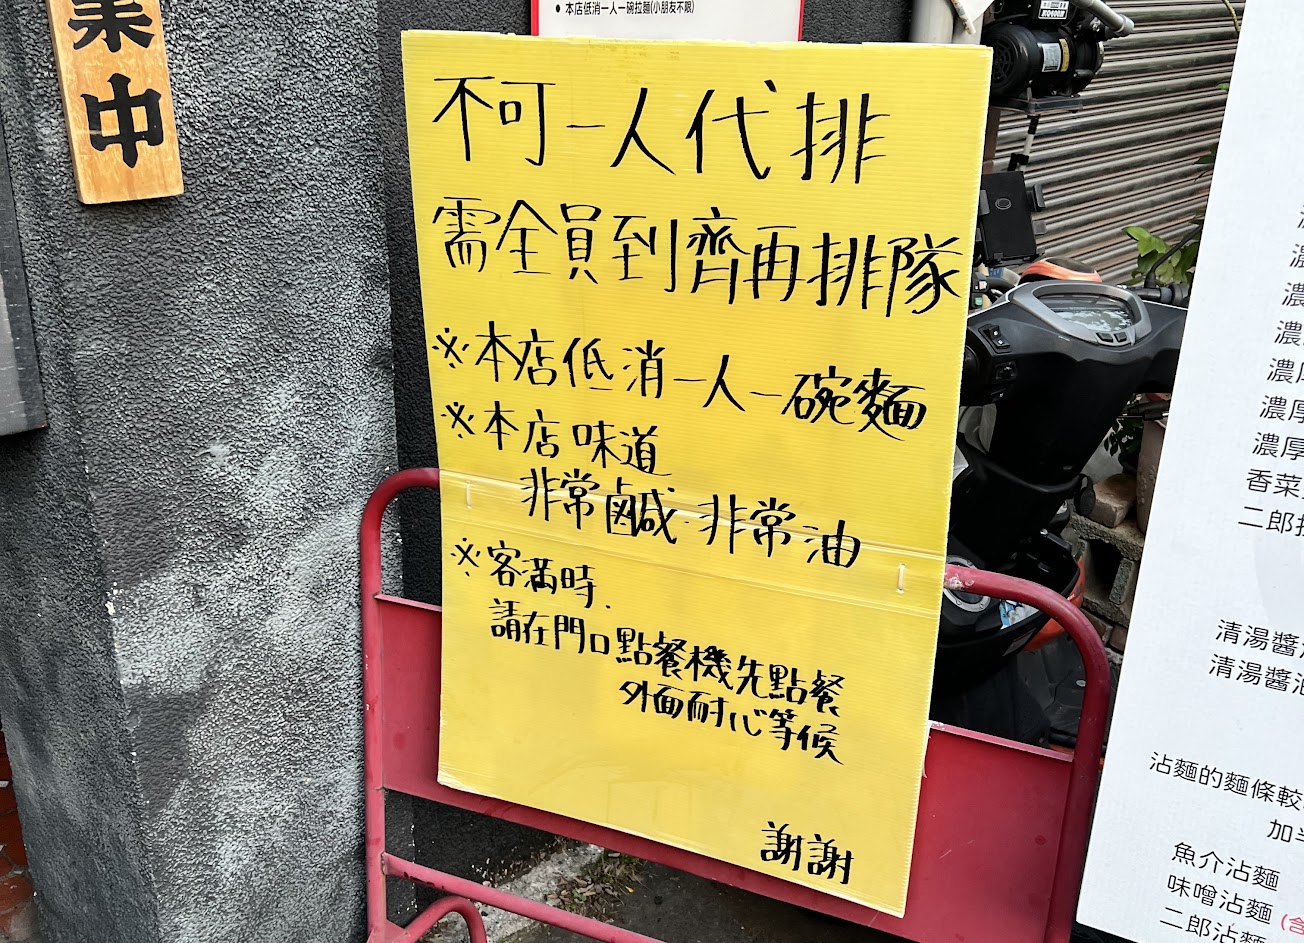 業中
● 本店低消一人一碗拉麵(小朋友不限)
不可一人代排
需全員到齊再排隊
※本店低消一人一碗麵
※本店味道
非常鹹.非常油
※客滿時.
請在門口點餐機先點餐
外面耐心等候
謝謝
濃
濃
濃厚
濃厚
濃厚
香菜
二郎
清湯醬
清湯醬油
沾麵的麵條較
加
魚介沾麵
味噌沾麵(含
二郎沾麵